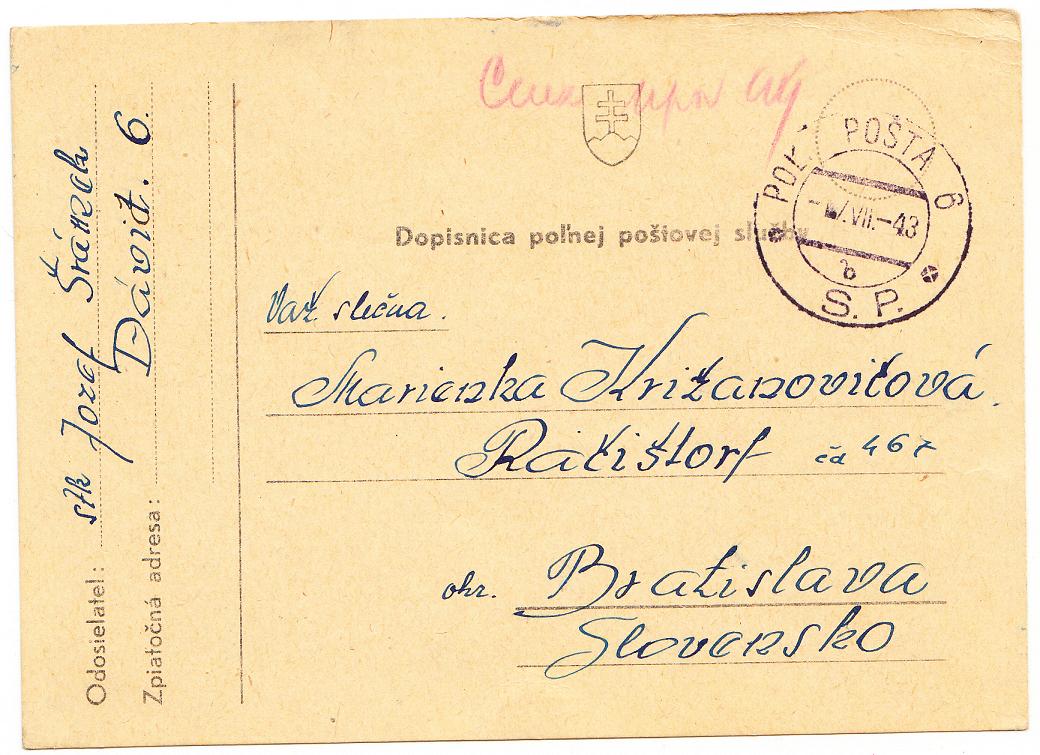 Dopisnica poľnej poštovej služby
POĽ. POŠTA 6
VII.-43
b
S. P.
Odosielateľ: stk Jozef Šrámek
Zpiatočná adresa: Dávid. 6.
Váž slečna.
Marienka Križanovičová.
Račištorf čd 467
okr. Bratislava
Slovensko